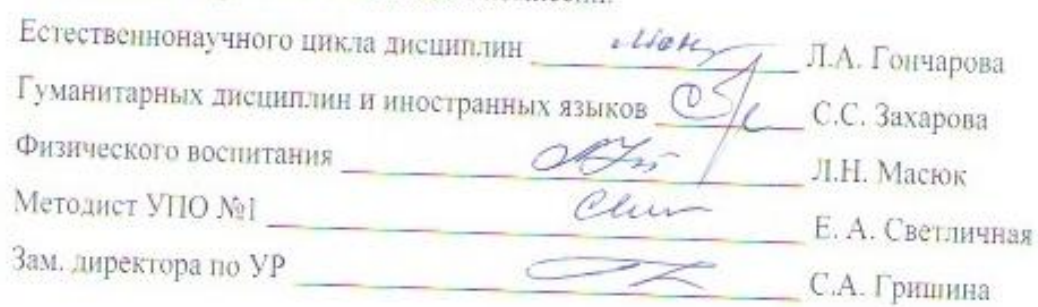 Естественнонаучного цикла дисциплин Л.А. Гончарова
Гуманитарных дисциплин и иностранных языков С.С. Захарова
Физического воспитания Л.Н. Масюк
Методист УПО №1 Е. А. Светличная
Зам. директора по УР С.А. Гришина